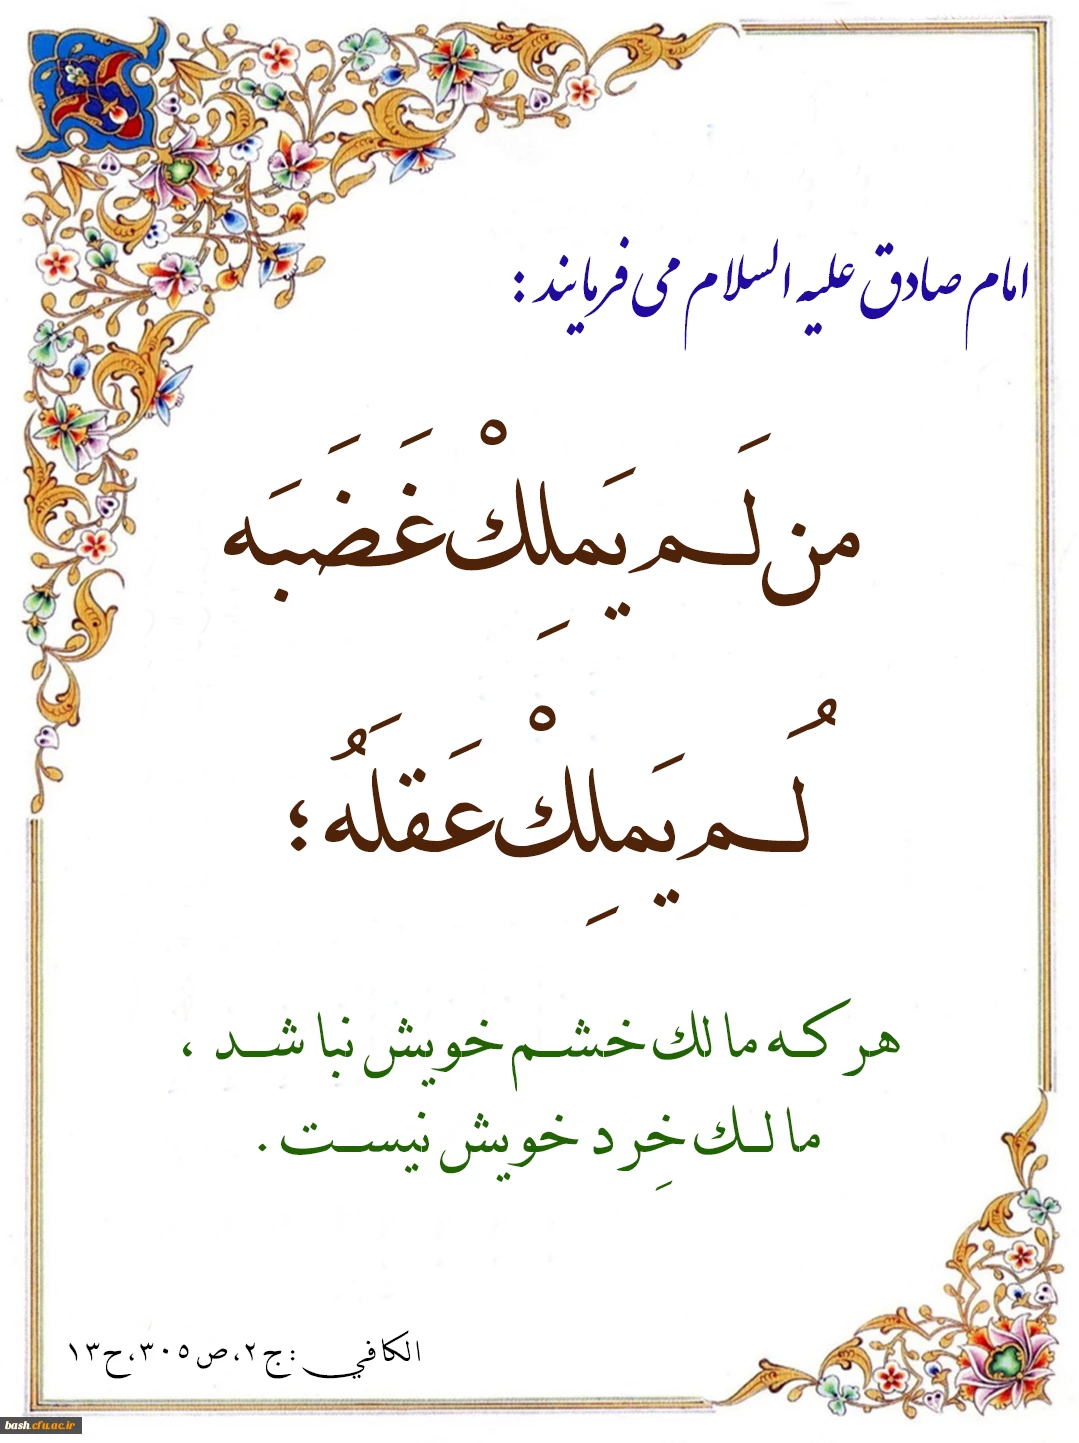 امام صادق علیه السلام می فرمایند :
من لَم یَملِكْ غَضَبَه
لُم یَملِكْ عَقلَهُ ؛
هر که مالك خشم خویش نباشد ،
مالك خِرد خویش نیست .
الكافي : ج٢، ص٣٠٥، ح١٣
bash.cfu.ac.ir